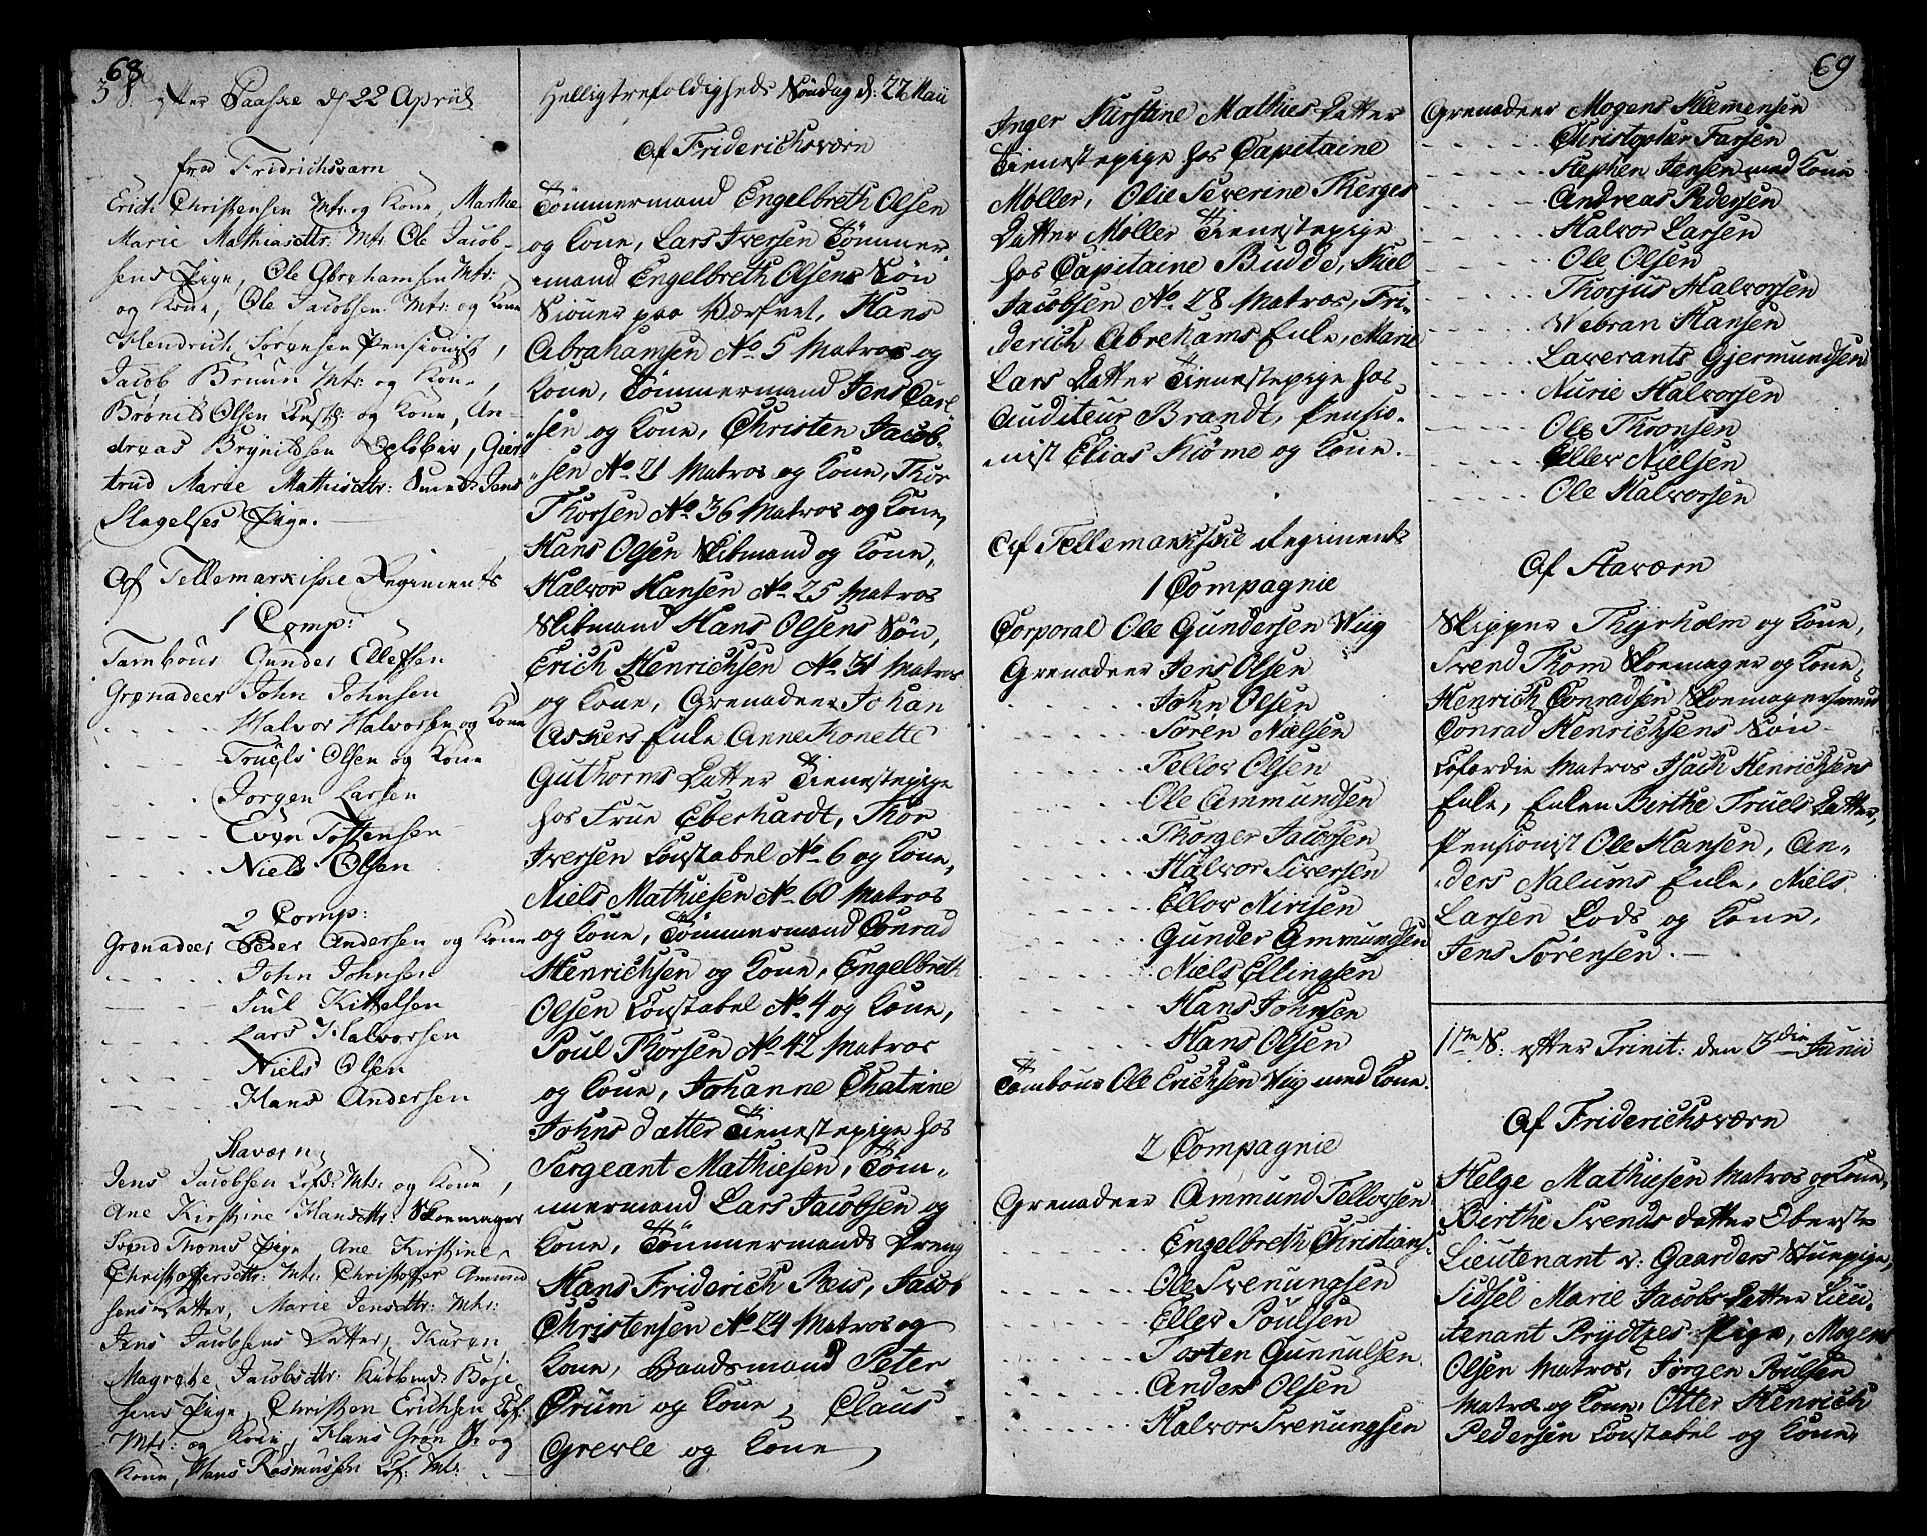 68
3 S. efter Paaske d 22 April
fra Fridrichsværn
Erich Christensen Mtr: og Kone, Marthe
Marie Mathiasdttr: Mtr Ole Jacob-
sens Pige, Ole Abrahamsen Mtr:
og Kone, Ole Jacobsen Mtr: og Kone
Hendrich Sørensen Pensionist,
Jacob Bruun Mtr: og Kone,
Brønild Olsen og Kone, An-
dreas Brynildsen, Gier-
trud Marie Mathisdttr: Smed Jans
Slagelses Pige.
Af Tellemarkiske Regiments
1 Comp:
Tambour Gunder Ellefsen
Grenadeer John Johnsen
Halvor Halvorsen og Kone
Truels Olsen og Kone
Jørgen Larsen
Even Tostensen
Niels Olsen
2 Comp:
Grenadeer Peder Andersen og Kone
John Johnsen
Juul Kittelsen
Lars Halvorsen
Niels Olsen
Hans Andersen
Staværn
Jens Jacobsen Cofd: Mtr: og Kone,
Ane Kirstine Hansdttr: Skoemager
Svend Thoms Pige, Ane Kirstine
Christoffersdttr: Mtr: Christoffer Amund
sens Datter, Marie Jensdttr: Mtr:
Jens Jacobsens Datter, Karen
Magrete Jacobsdttr: Kiøbmd: Boje
sens Pige, Christen Erichsen Cof:
Mtr: og Kone, Hans Grøn S: og
Kone, Hans Rasmussen Cof: Mtr:
Helligtrefoldigheds Søndag d: 27 Maii
Af Friderichsværn
Tømmermand Engelbreth Olsen
og Kone, Lars Iversen Tømmer-
mand Engelbreth Olsens Søn
Siouer paa Værfvet, Hans
Abrahamsen No 5 Matros og
Kone, Tømmermand Jens Carl-
sen og Kone, Christen Jacob-
sen No 21 Matros og Kone, Thor
Thorsen No 36 Matros og Kone,
Hans Olsen Skibmand og Kone,
Halvor Hansen No 25 Matros
Skibmand Hans Olsens Søn,
Erich Henrichsen No 31 Matros
og Kone, Grenadeer Johan
Askers Enke Anne Tonette
Guthorms Datter Tienestepige
hos Frue Eberhardt, Thor
Iversen Constabel No 6 og Kone,
Niels Mathiesen No 60 Matros
og Kone, Tømmermand Conrad
Henrichsen og Kone, Engelbreth
Olsen Constabel No 4 og Kone,
Poul Thorsen No 42 Matros
og Kone, Johanne Chatrine
Johns datter Tienestepige hos
Sergeant Mathiesen, Tøm-
mermand Lars Jacobsen og
Kone, Tømmermands Dreng
Hans Friderich Reis, Jacob
Christensen No 24 Matros og
Kone, Baadsmand Peter
Ørum og Kone, Claus
Grevle og Kone
69
Inger Kirstine Mathies Datter
Tienestepige hos Capitaine
Møller, Olie Severine Therges
Datter Møller Tienestepige
hos Capitaine Budde, Niel
Jacobsen No 28 Matros, Fri-
derich Abrehams Enke, Marie
Lars Datter Tienestepige hos
Auditeur Brandt, Pensio-
nist Elias Kiøme og Kone.
Af Tellemarkiske Regiments
1 Compagnie
Corporal Ole Gundersen Wiig
Grenadeer Jens Olsen
John Olsen
Søren Nielsen
Tellov Olsen
Ole Ammundsen
Thorger Jacobsen
Halvor Siversen
Ellov Nirisen
Gunder Ammundsen
Niels Ellingsen
Hans Johnsen
Hans Olsen
Tambour Ole Erichsen Wiig med Kone.
2 Compagnie
Grenadeer Ammund Tellovsen
Engelbreth Christians:
Ole Svenungsen
Ellev Poulsen
Tosten Gunnulsen
Anders Olsen
Halvor Svenungsen
Grenadeer Mogens Klemensen
Christopher Farsen
Stephen Jensen med Kone
Andreas Pedersen
Halvor Larsen
Ole Olsen
Thorjus Halvorsen
Vebran Hansen
Laverants Gjermundsen
Nurie Halvorsen
Ole Thronsen
Ellev Nielsen
Ole Halvorsen
Af Staværn
Skipper Thyrholm og Kone,
Svend Thom Skoemager og Kone,
Henrich Conradsen Skoemagersvend
Conrad Henrichsens Søn
Cofardie Matros Isach Henrichsens
Enke, Enken Birthe Truels Datter,
Pensionist Ole Hansen, An-
ders Nalums Enke, Niels
Larsen Lods og Kone,
Jens Sørensen.
1te S: efter Trinit: den 3die Junii
Af Friderichsværn
Helge Mathiesen Matros og Kone,
Birthe Svends datter Oberste
Lieutenant v: Gaarders Stuepige,
Sidsel Marie Jacobs Datter Lieu-
tenant Prydtzes Pige, Mogens
Olsen Matros, Jørgen Poulsen
Matros og Kone, Otter Henrich
Pedersen Constabel og Kone,